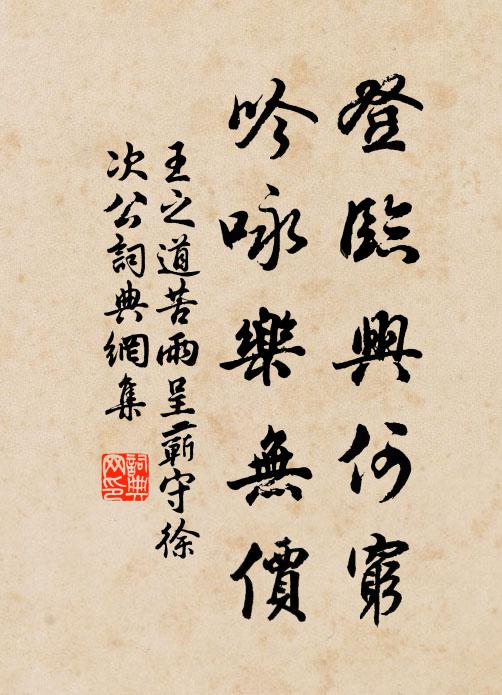 登臨興何窮
吟咏樂無價
王之道苦雨呈蘄守徐
次公詞典網集
詞典網印